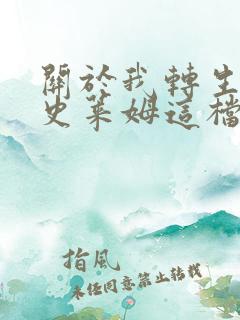 關於我轉生
史萊姆這檔
指風
未經同意禁止轉載